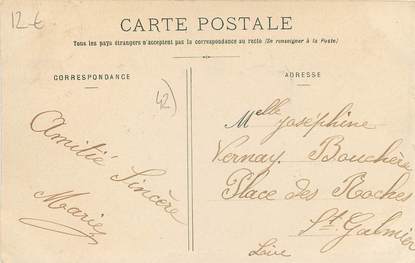 12-€
CARTE POSTALE
Tous les pays étrangers n'acceptent pas la correspondance au recto (Se renseigner à la Poste)
CORRESPONDANCE
42
Amitié Sincère
Marie
ADRESSE
Melle Joséphine
Vernay Bouchère
Place des Roches
St. Galmier
Loire